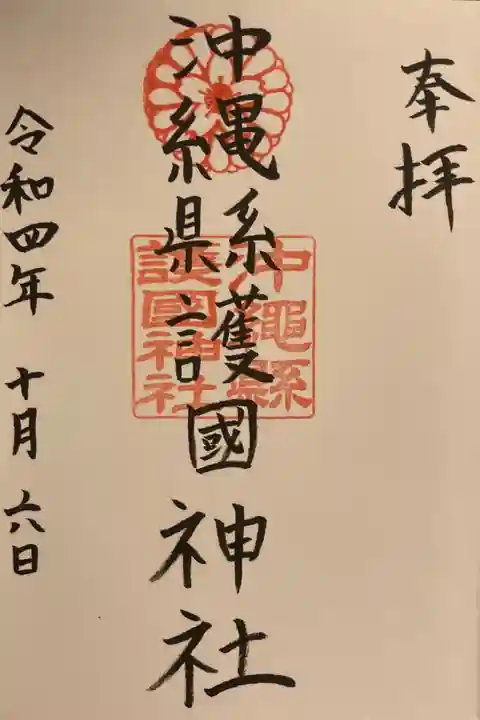 奉拝
沖縄縣護國神社
沖繩縣
護國神社
令和四年 十月六日